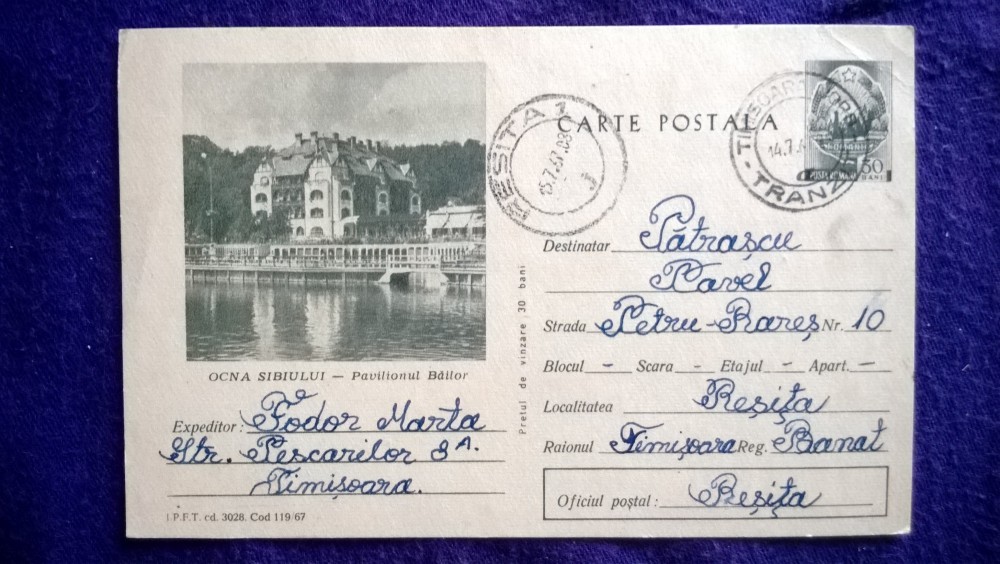 CARTE POSTALA
REȘIȚA 1
15.7.67.08
TIMIȘOARA
14.7.6
TRANZ
POSTA ROMANA
50
BANI
Destinatar Pătrașcu
Pavel
Strada Petru-Rareș Nr. 10
Blocul - Scara - Etajul - Apart. -
Localitatea Reșița
Raionul Timișoara Reg. Banat
Oficiul poștal: Reșița
Prețul de vînzare 30 bani
OCNA SIBIULUI — Pavilionul Băilor
Expeditor: Fodor Marta
Str. Pescarilor 8A.
Timișoara.
I.P.F.T. cd. 3028. Cod 119/67